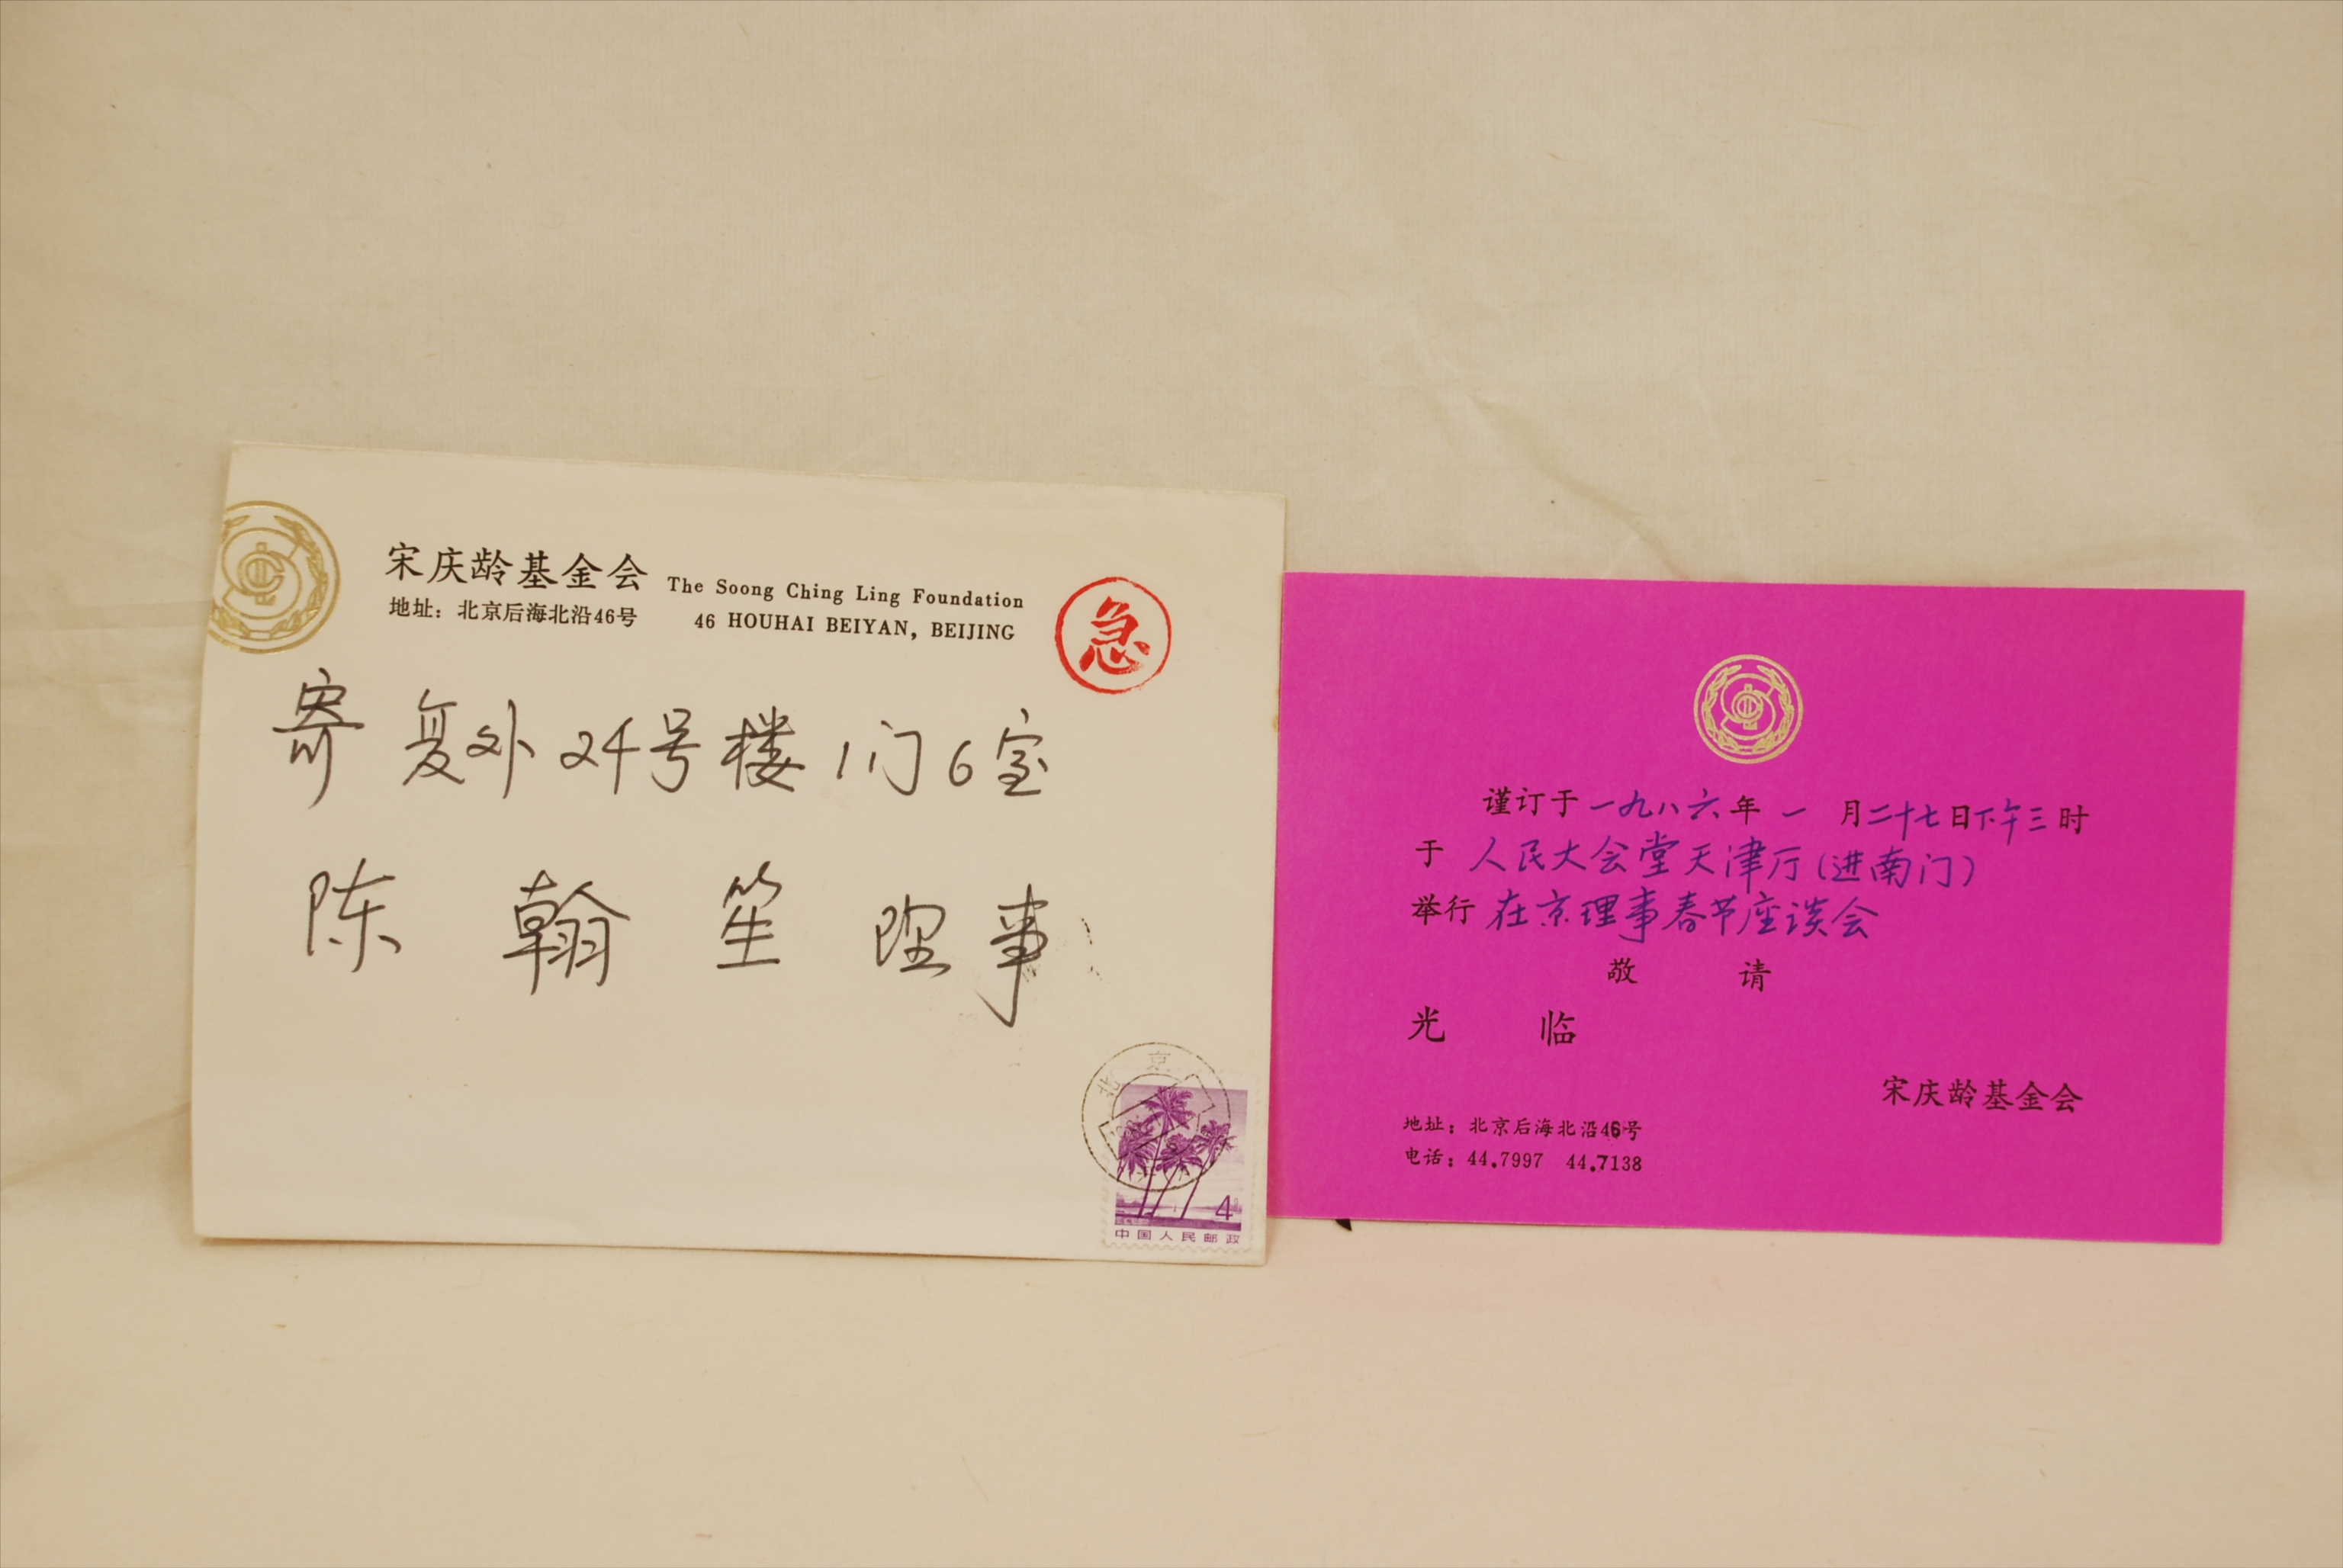 宋庆龄基金会 The Soong Ching Ling Foundation
地址：北京后海北沿46号 46 HOUHAI BEIYAN, BEIJING
急
寄 复外24号楼1门6室
陈翰笙理事
北京
4
中国人民邮政
谨订于一九八六年一月二十七日下午三时
于人民大会堂天津厅（进南门）
举行在京理事春节座谈会
敬请
光临
宋庆龄基金会
地址：北京后海北沿46号
电话：44.7997 44.7138